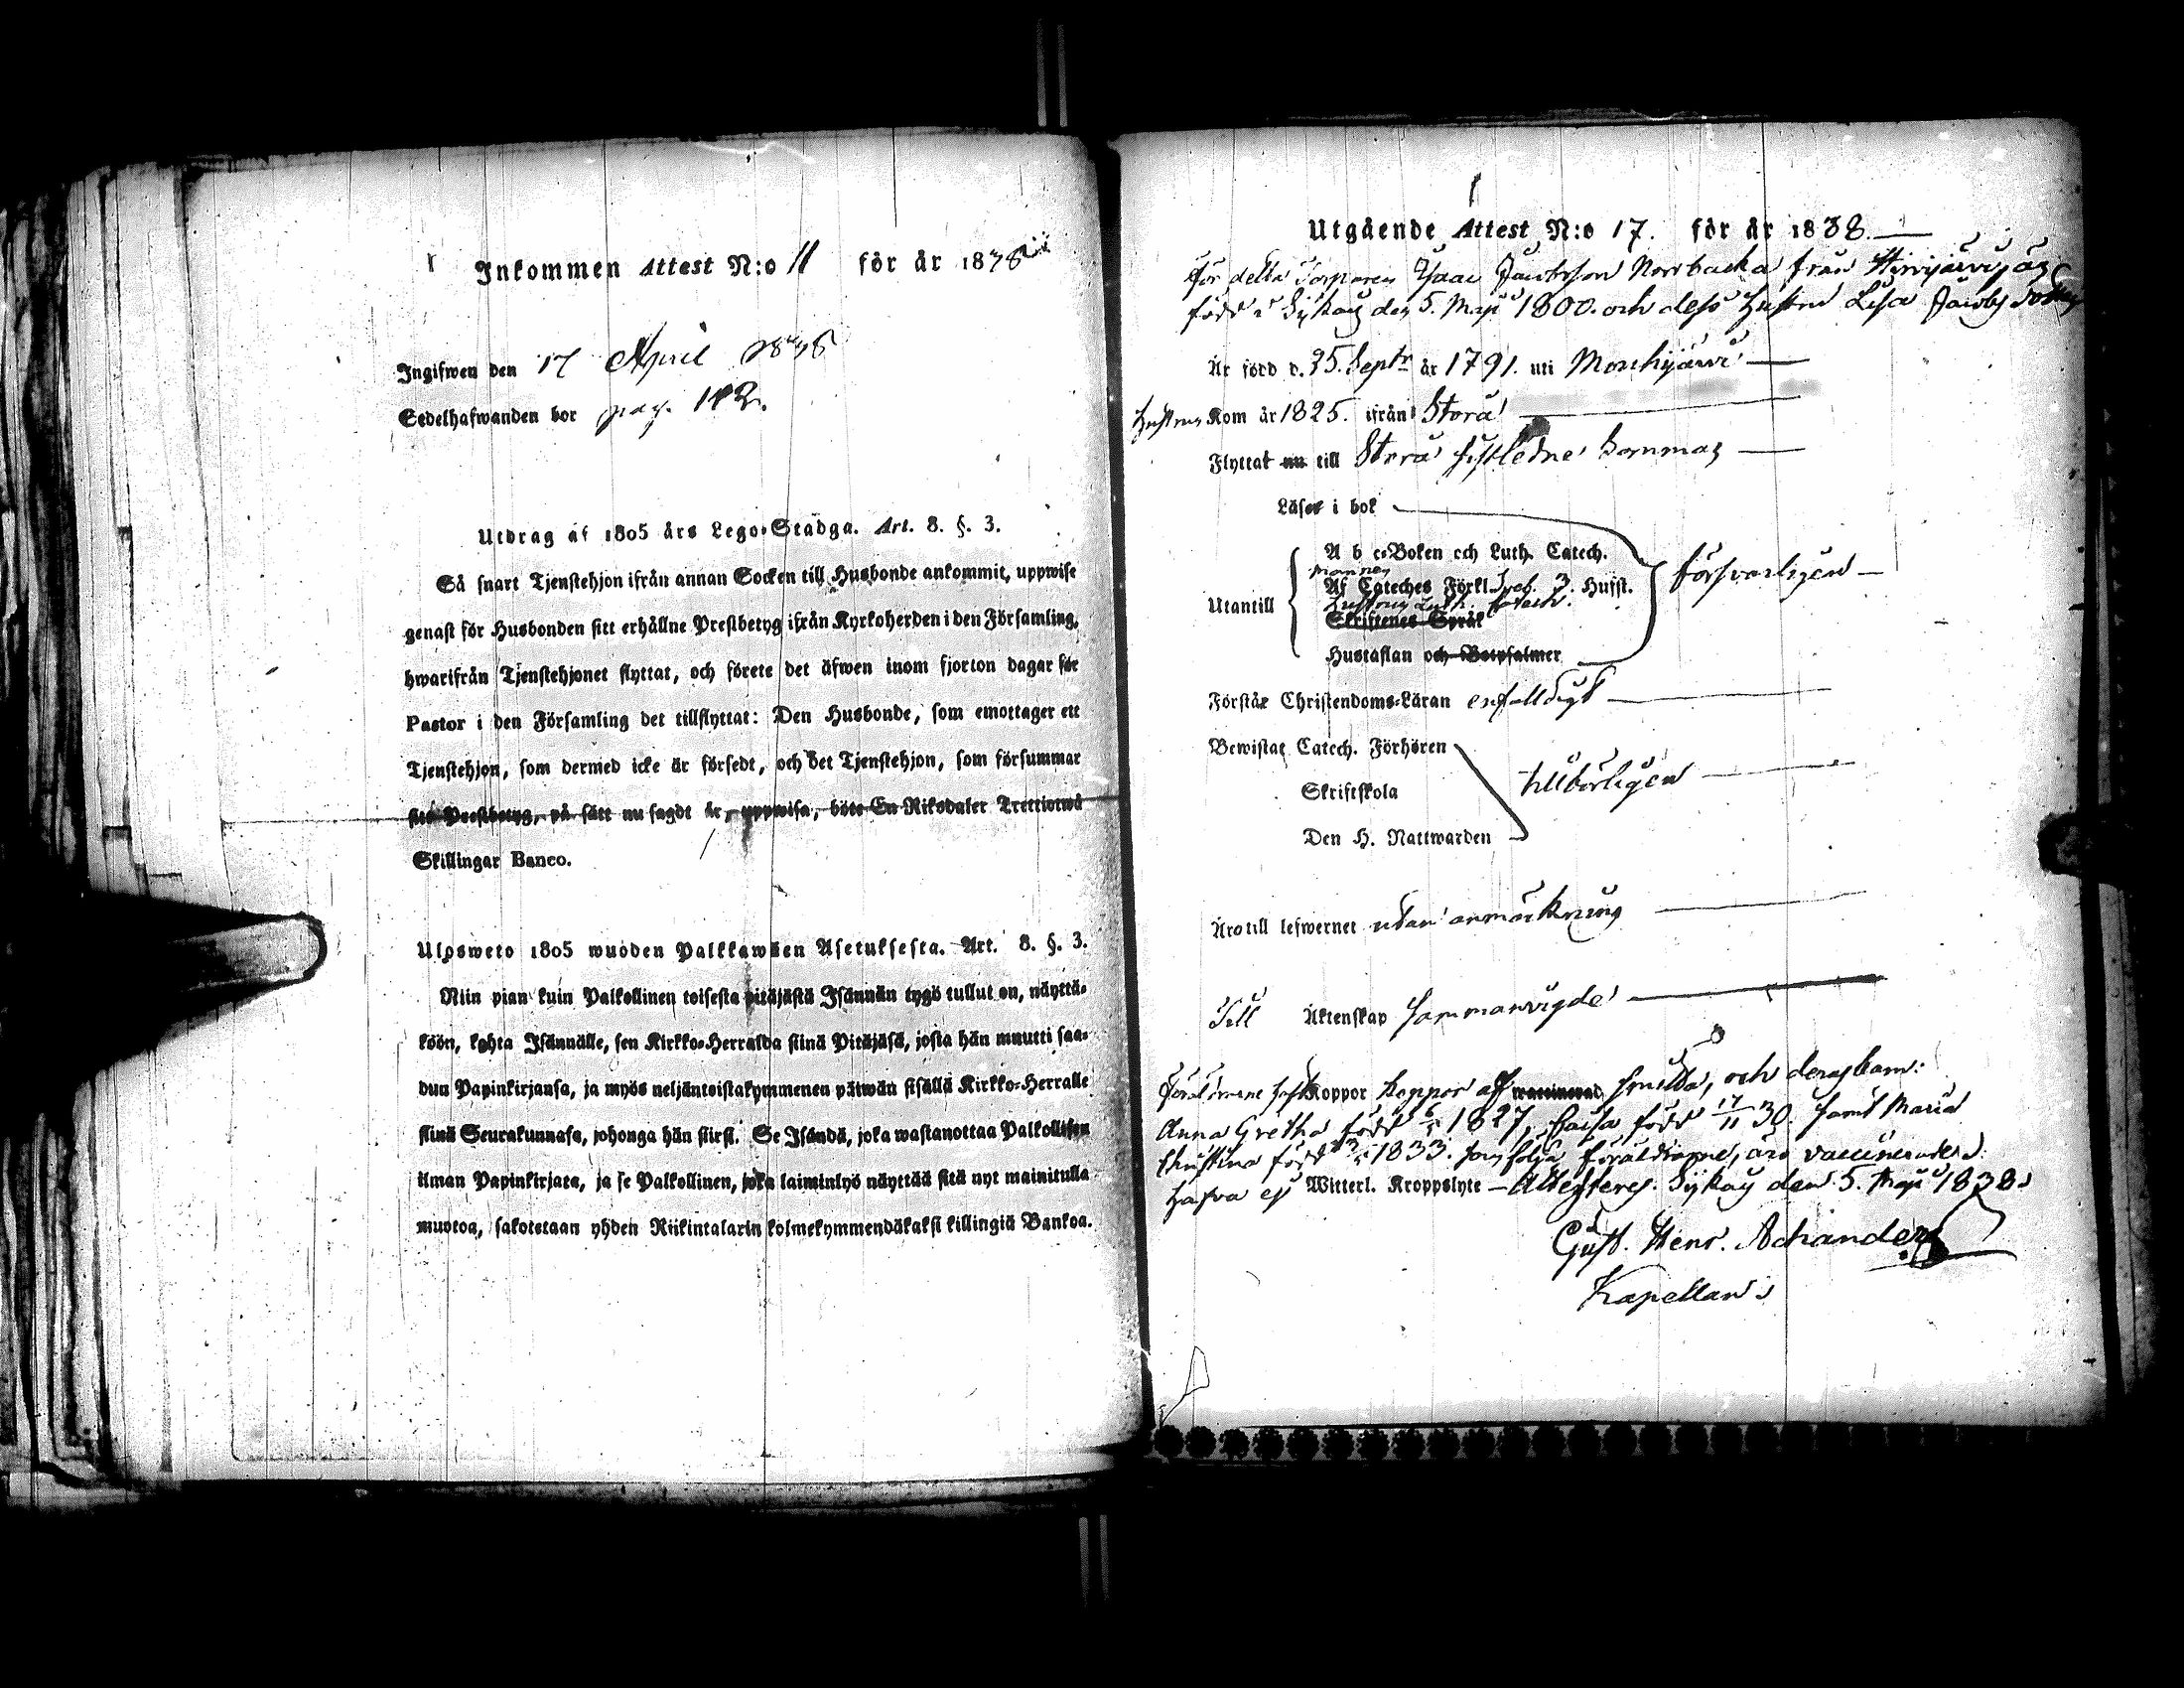 Inkommen Attest N:o 11 för år 1838
Ingifwen den 17 April 1838
Sedelhafwanden bor pag. 192.
Utdrag af 1805 års Lego-Stadga. Art. 8. §. 3.
Så snart Tjenstehjon ifrån annan Socken till Husbonde ankommit, uppwise
genast för Husbonden sitt erhållne Prestbetyg ifrån Kyrkoherden i den Församling,
hwarifrån Tjenstehjonet flyttat, och förete det äfwen inom fjorton dagar för
Pastor i den Församling det tillflyttat: Den Husbonde, som emottager ett
Tjenstehjon, som dermed icke är försedt, och det Tjenstehjon, som försummar
sitt Prestbetyg, på sätt nu sagdt är, uppwisa, böte En Riksdaler Trettiotwå
Skillingar Banco.
Ulosweto 1805 wuoden Palkkawäen Asetuksesta. Art. 8. §. 3.
Niin pian kuin Palkollinen toisesta pitäjästä Isännän tygö tullut on, näyttä-
köön, kohta Isännälle, sen Kirkko-Herralda siinä Pitäjäsä, josta hän muutti saa-
dun Papinkirjansa, ja myös neljäntoistakymmenen päiwän sisällä Kirkko-Herralle
siinä Seurakunnasa, johonga hän siirsi. Se Isändä, joka wastanottaa Palkollisen
ilman Papinkirjata, ja se Palkollinen, joka laiminlyö näyttää sitä nyt mainitulla
muotoa, sakotetaan yhden Riikintalarin kolmekymmendäkaksi killingiä Bankoa.
Utgående Attest N:o 17. för år 1838.
För detta Torparen Isaac Jacobsson Norrbacka från Hirvijärvj äg
född i Sykay den 5. Maji 1800. och dess hustru Lisa Jacobs dotter
Är född d. 25. Septr år 1791. uti Mouhijärvi
hustrun Kom år 1825. ifrån Storå
Flyttat nu till Storå sistledne sommar
Läser i bok
A b c-Boken och Luth. Catech.
mannen
Af Cateches Förkl. Sveb. 3. Hufst. försvarligen
Utantill hustrun Luth. Catech.
Skriftenes Språk
Hustaflan och Botpsalmer
Förstår Christendoms-Läran enfalldigt
Bewistat Catech. Förhören
Skriftskola tillbörligen
Den H. Nattwarden
Äro till lefwernet utan anmärkning
Till Äktenskap sammanvigde
Föräldrarne haft Koppor koppor af vaccinerad smitta, och deras barn:
Anna Gretha född 1827, Caisa född 17/11 30. samt Maria
Christina född 1833. som följa föräldrarne, äro vaccinerade
hafva ej Witterl. Kroppslyte Attesteras. Sykay den 5. Maji 1838.
Gust. Henr. Achander
Kapellan